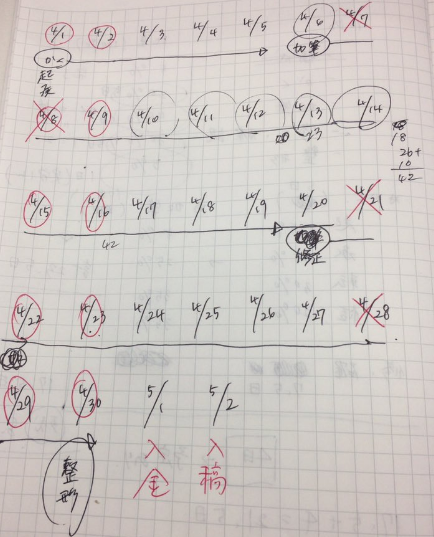 4/1 4/2 4/3 4/4 4/5 4/6 4/7
かく 加筆
起
承
4/8 4/9 4/10 4/11 4/12 4/13 4/14
23
18
26+
10
42
4/15 4/16 4/17 4/18 4/19 4/20 4/21
42
修正
4/22 4/23 4/24 4/25 4/26 4/27 4/28
4/29 4/30 5/1 5/2
整形
入金
入稿